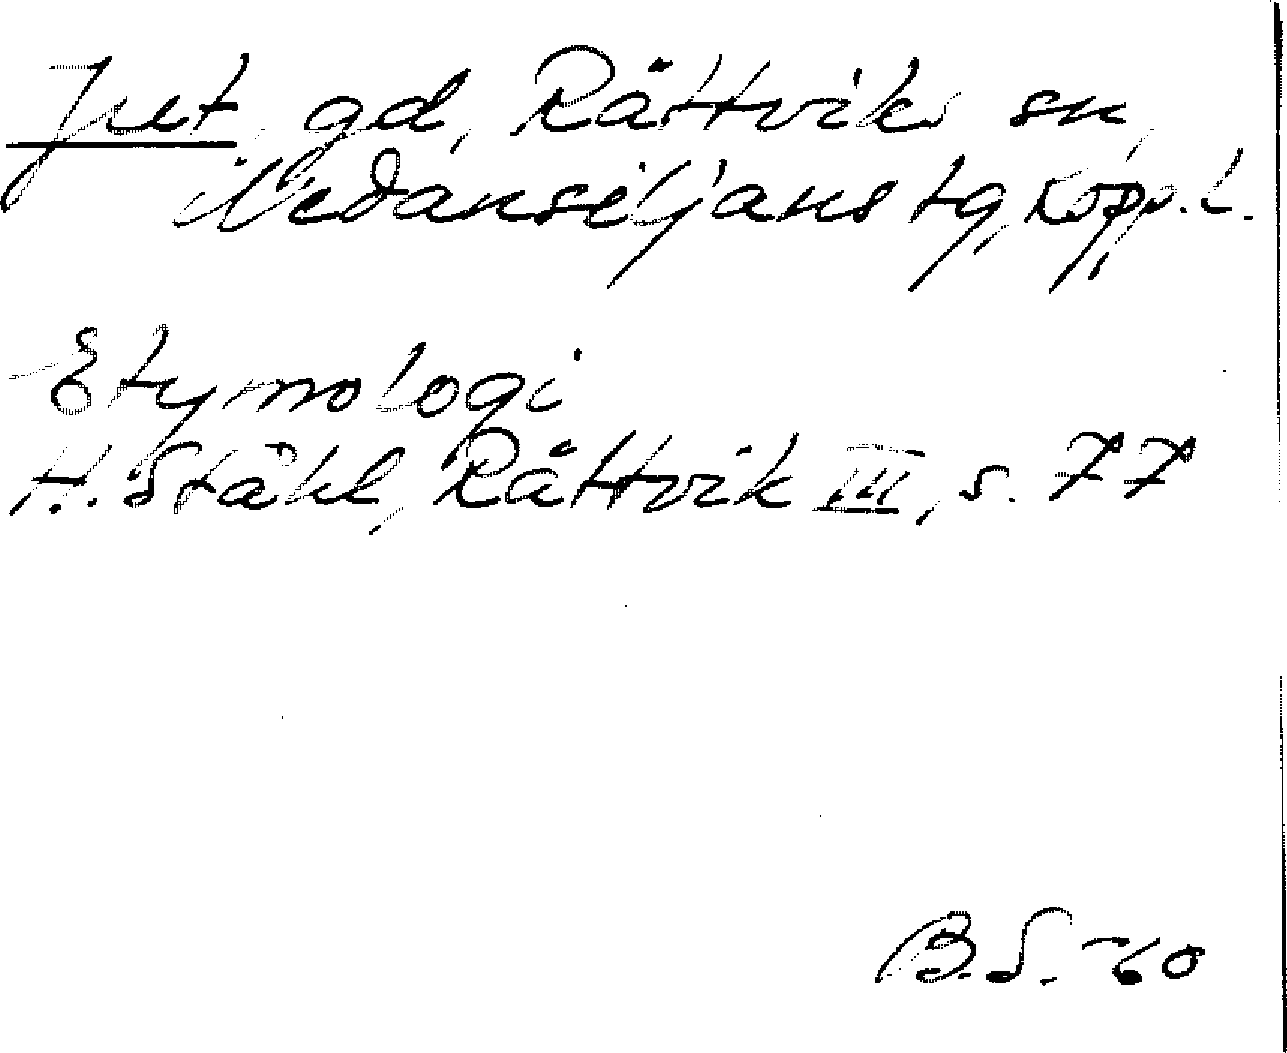 Jut, gd, Rättviks sn,
Nedansiljans tg, Kopp. l.
Etymologi
H. Ståhl, Rättvik III, s. 77
B.S. -60